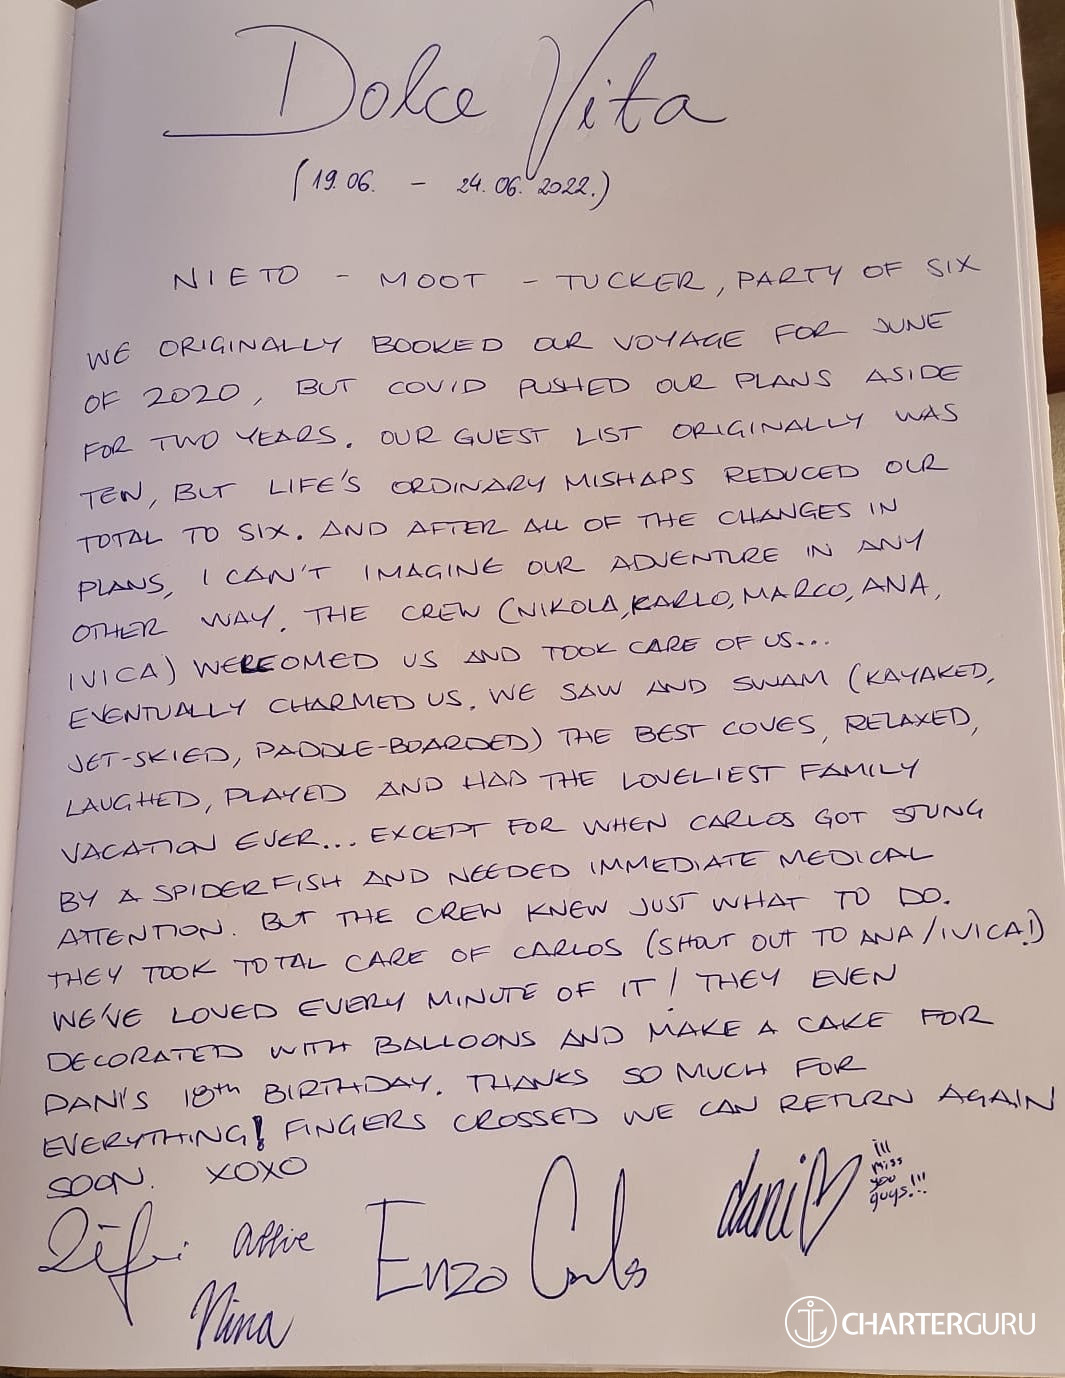 Dolce Vita
(19.06. - 24.06.2022.)
NIETO - MOOT - TUCKER, PARTY OF SIX
WE ORIGINALLY BOOKED OUR VOYAGE FOR JUNE
OF 2020, BUT COVID PUSHED OUR PLANS ASIDE
FOR TWO YEARS. OUR GUEST LIST ORIGINALLY WAS
TEN, BUT LIFE'S ORDINARY MISHAPS REDUCED OUR
TOTAL TO SIX. AND AFTER ALL OF THE CHANGES IN
PLANS, I CAN'T IMAGINE OUR ADVENTURE IN ANY
OTHER WAY. THE CREW (NIKOLA, KARLO, MARCO, ANA,
IVICA) WELCOMED US AND TOOK CARE OF US...
EVENTUALLY CHARMED US. WE SAW AND SWAM (KAYAKED,
JET-SKIED, PADDLE-BOARDED) THE BEST COVES, RELAXED,
LAUGHED, PLAYED AND HAD THE LOVELIEST FAMILY
VACATION EVER... EXCEPT FOR WHEN CARLOS GOT STUNG
BY A SPIDERFISH AND NEEDED IMMEDIATE MEDICAL
ATTENTION. BUT THE CREW KNEW JUST WHAT TO DO.
THEY TOOK TOTAL CARE OF CARLOS (SHOUT OUT TO ANA/IVICA!)
WE'VE LOVED EVERY MINUTE OF IT! THEY EVEN
DECORATED WITH BALLOONS AND MAKE A CAKE FOR
DANI'S 18th BIRTHDAY. THANKS SO MUCH FOR
EVERYTHING! FINGERS CROSSED WE CAN RETURN AGAIN
SOON. XOXO
Enzo Carlos dani
iii miss you guys!!!
Nina
CHARTERGURU